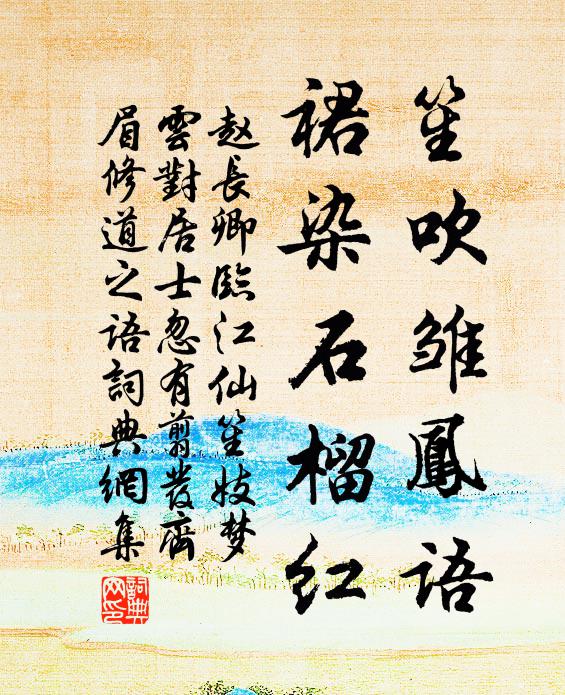 笙吹雏鳳語
裙染石榴红
赵長卿臨江仙笙妓梦
雲對居士忽有翦發齊
眉修道之语詞典網集
詞典
网印